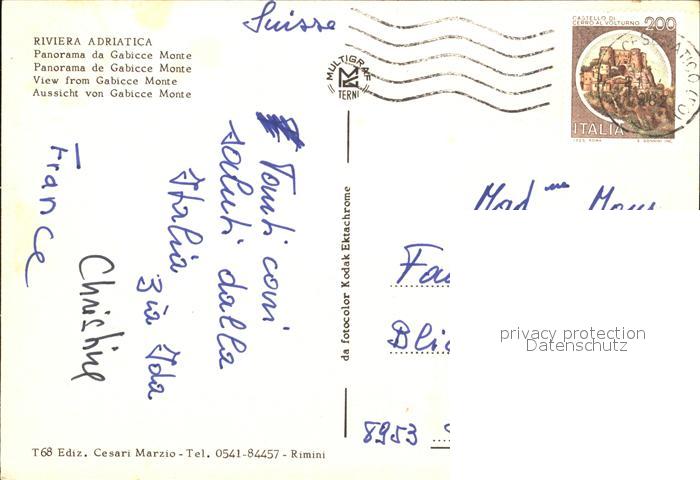 Suisse
RIVIERA ADRIATICA
Panorama da Gabicce Monte
Panorama de Gabicce Monte
View from Gabicce Monte
Aussicht von Gabicce Monte
MULTIGRAF
TERNI
CASTELLO DI
CERRO AL VOLTURNO 200
ITALIA
Tanti cari
saluti dalla
Italia
Zia Ida
Christine
France
da fotocolor Kodak Ektachrome
Mad
8953
privacy protection
Datenschutz
T68 Ediz. Cesari Marzio - Tel. 0541-84457 - Rimini